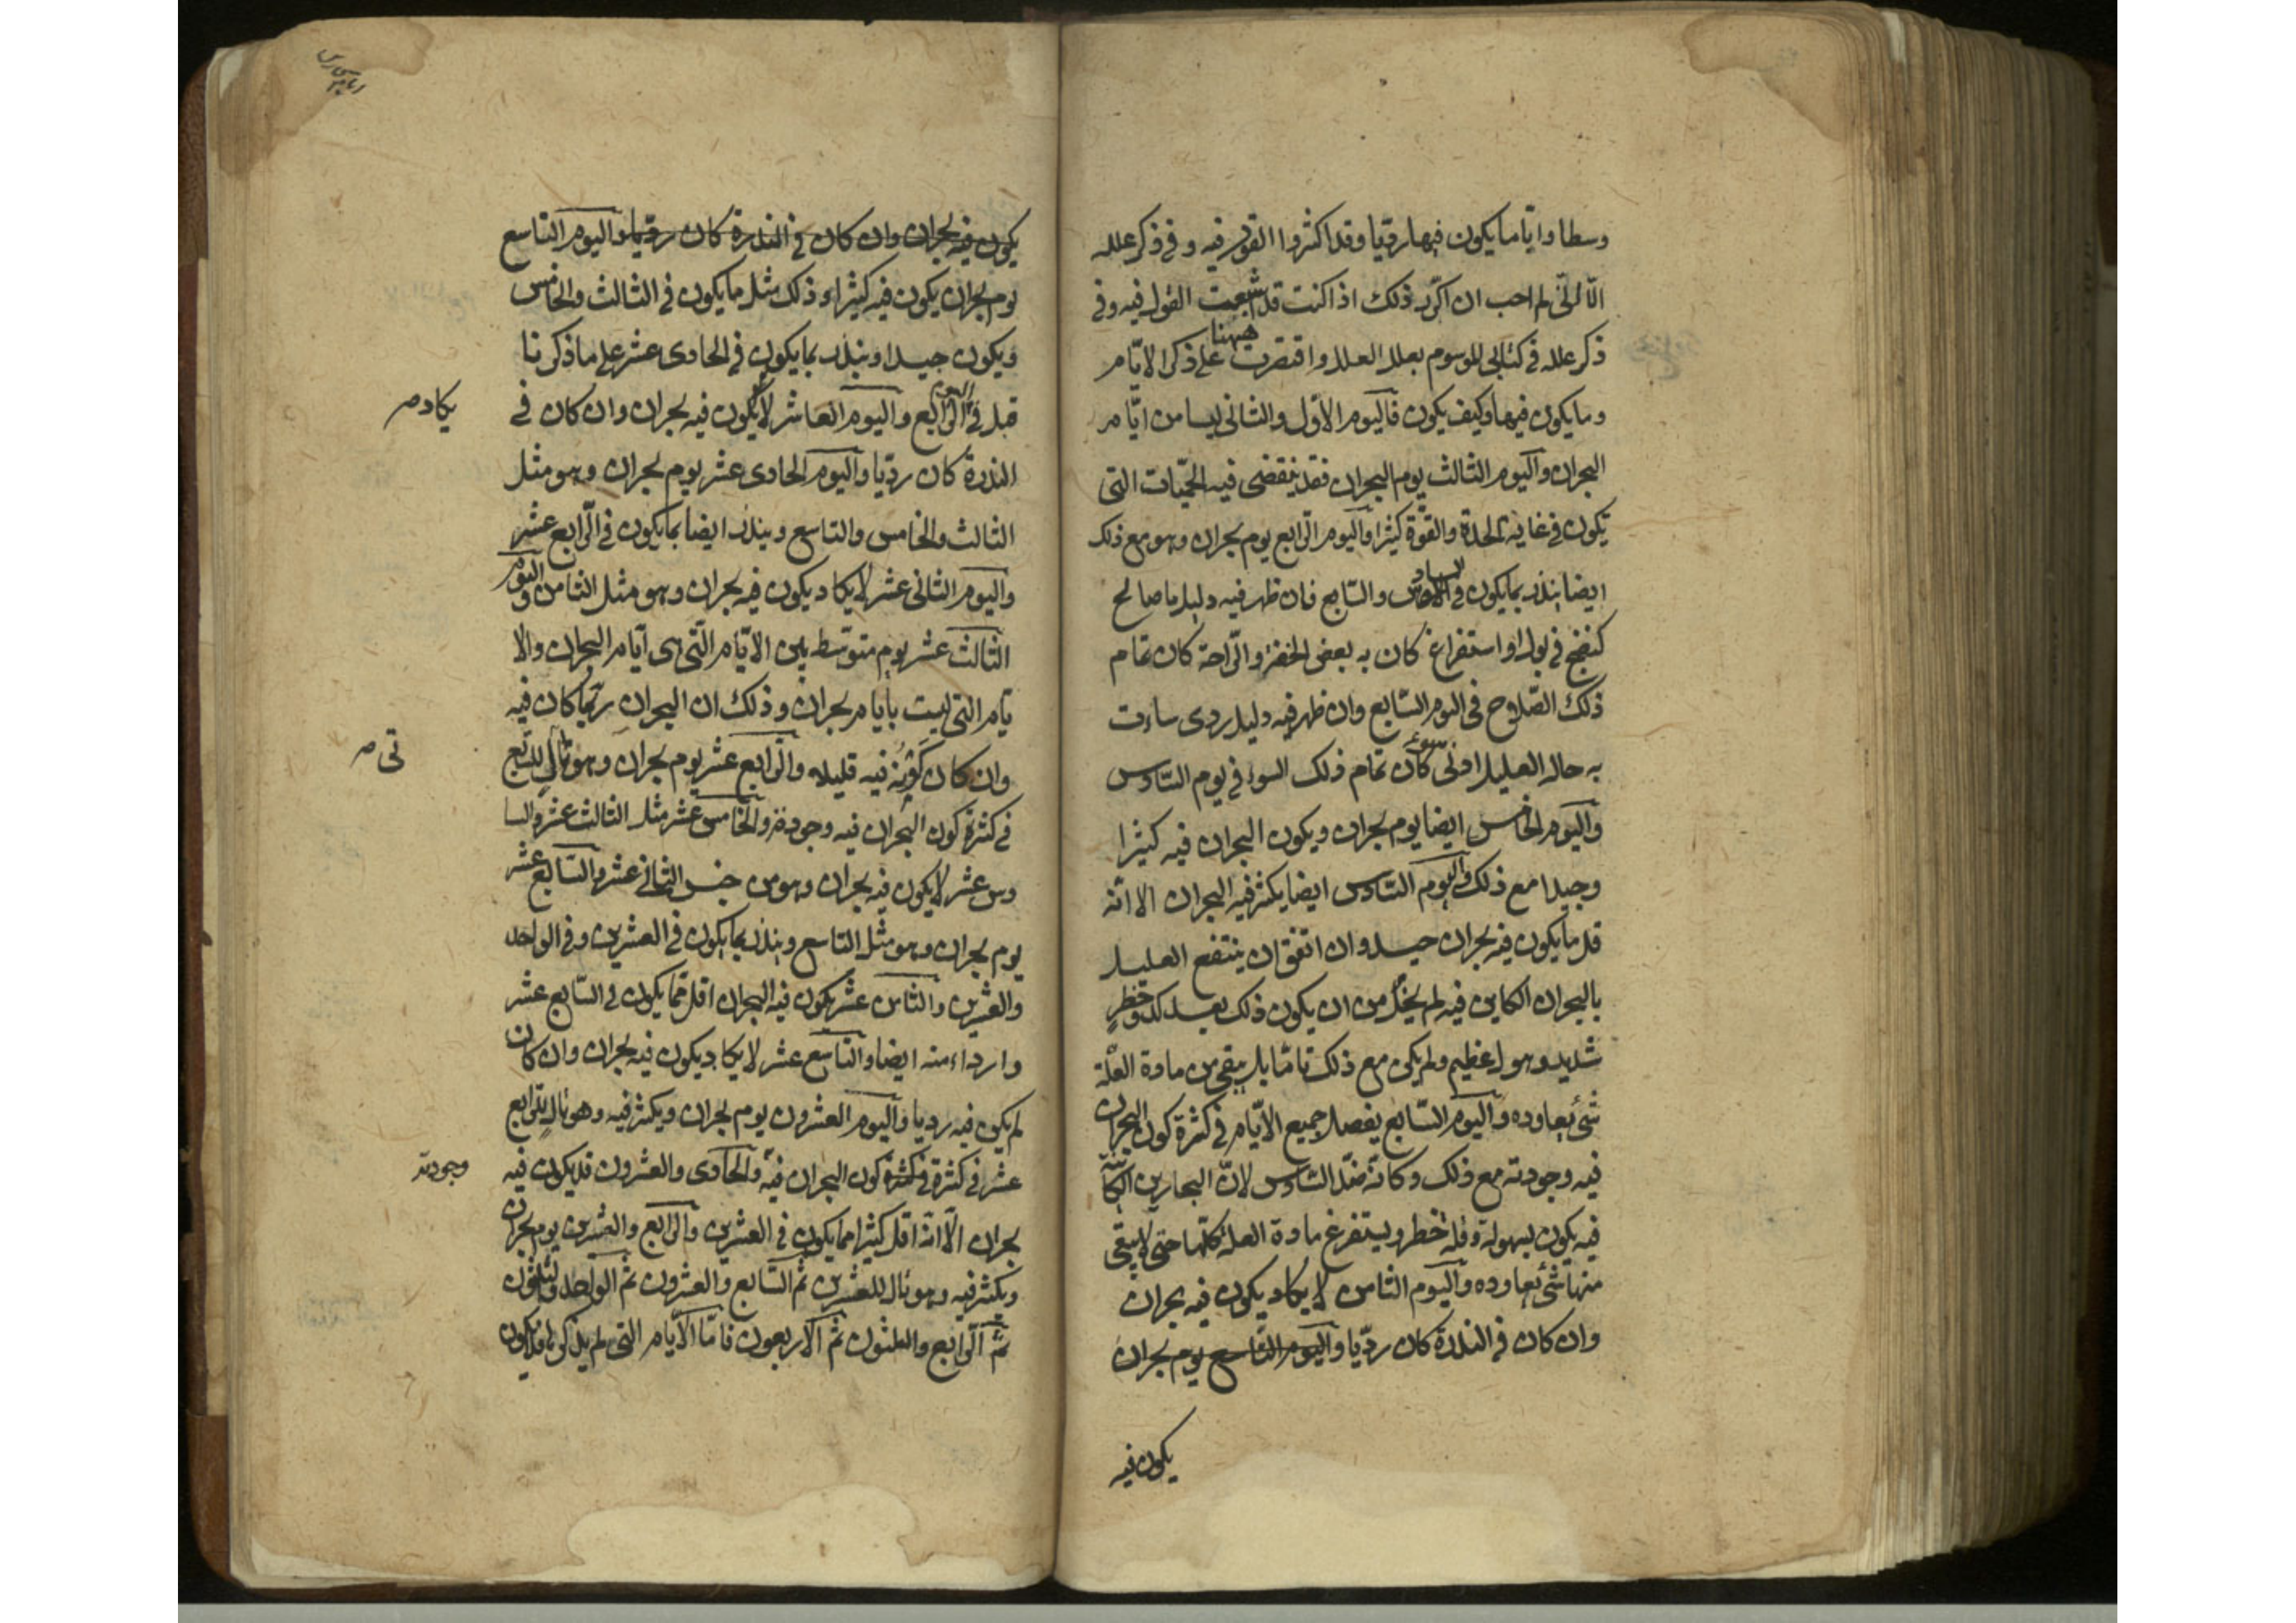 وسطا واياما يكون فيها رديا وقد اكثروا القول فيه وفي ذكر علله
الا انني لم احب ان اكرر ذلك اذا كنت قد اشبعت القول فيه وفي
ذكر علله في كتابي الموسوم بعلل العلل واقتصرت ههنا على ذكر الايام
وما يكون فيها وكيف يكون فاليوم الاول والثاني ليسا من ايام
البحران واليوم الثالث يوم البحران فقد ينقضي فيه الحميات التي
تكون في غاية الحدة والقوة كثيرا واليوم الرابع يوم بحران وهو مع ذلك
ايضا ينذر بما يكون في السادس والسابع فان ظهر فيه دليل ما صالح
كنضج في بول او استفراغ كان به بعض الخفة والراحة كان تمام
ذلك الصلاح في اليوم السابع وان ظهر فيه دليل ردى ساءت
به حال العليل ادنى سوء كان تمام ذلك السوء في يوم السادس
واليوم الخامس ايضا يوم بحران ويكون البحران فيه كثيرا
وجيدا مع ذلك واليوم السادس ايضا يكثر فيه البحران الا انه
قل ما يكون فيه بحران جيد وان اتفق ان ينتفع العليل
بالبحران الكاين فيه لم يخل من ان يكون ذلك بعد كد وخطر
شديد وهول عظيم ولم يكن مع ذلك تاما بل يبقى من مادة العلة
شئ يعاوده واليوم السابع يفضل جميع الايام في كثرة كون البحران
فيه وجودته مع ذلك وكانه ضد السادس لان البحارين الكائنة
فيه يكون بسهولة وقلة خطر ويستفرغ مادة العلة كلها حتى لا يبقى
منها شئ يعاوده واليوم الثامن لا يكاد يكون فيه بحران
وان كان في الندرة كان رديا واليوم التاسع يوم بحران
يكون فيه
يكون فيه بحران وان كان في الندرة كان رديا واليوم التاسع
يوم بحران يكون فيه كثيرا وذلك مثل ما يكون في الثالث والخامس
ويكون جيدا وينذر بما يكون في الحادى عشر على ما ذكرنا
قبل في اليوم الرابع واليوم العاشر لا يكون فيه بحران وان كان في
يكاد صح
الندرة كان رديا واليوم الحادى عشر يوم بحران وهو مثل
الثالث والخامس والتاسع وينذر ايضا بما يكون في الرابع عشر
واليوم الثاني عشر لا يكاد يكون فيه بحران وهو مثل الثامن واليوم
الثالث عشر يوم متوسط بين الايام التي هى ايام البحران والا
يام التي ليست بايام بحران وذلك ان البحران ربما كان فيه
وان كان كونه فيه قليلا والرابع عشر يوم بحران وهو تال للسابع
في كثرة كون البحران فيه وجودته والخامس عشر مثل الثالث عشر والسا
دس عشر لا يكون فيه بحران وهو من جنس الثاني عشر والسابع عشر
يوم بحران وهو مثل التاسع وينذر بما يكون في العشرين وفي الواحد
والعشرين والثامن عشر يكون فيه البحران اقل مما يكون في السابع عشر
وارداء منه ايضا والتاسع عشر لا يكاد يكون فيه بحران وان كان
لم يكن فيه رديا واليوم العشرون يوم بحران ويكثر فيه وهو تال للرابع
عشر في كثرة في كثرة كون البحران فيه والحادى والعشرون قد يكون فيه
وجودته
بحران الا انه اقل كثيرا مما يكون في العشرين والرابع والعشرين يوم بحران
ويكثر فيه وهو تال للعشرين ثم السابع والعشرون ثم الواحد والثلثون
ثم الرابع والثلثون ثم الاربعون فاما الايام التي لم يذكر